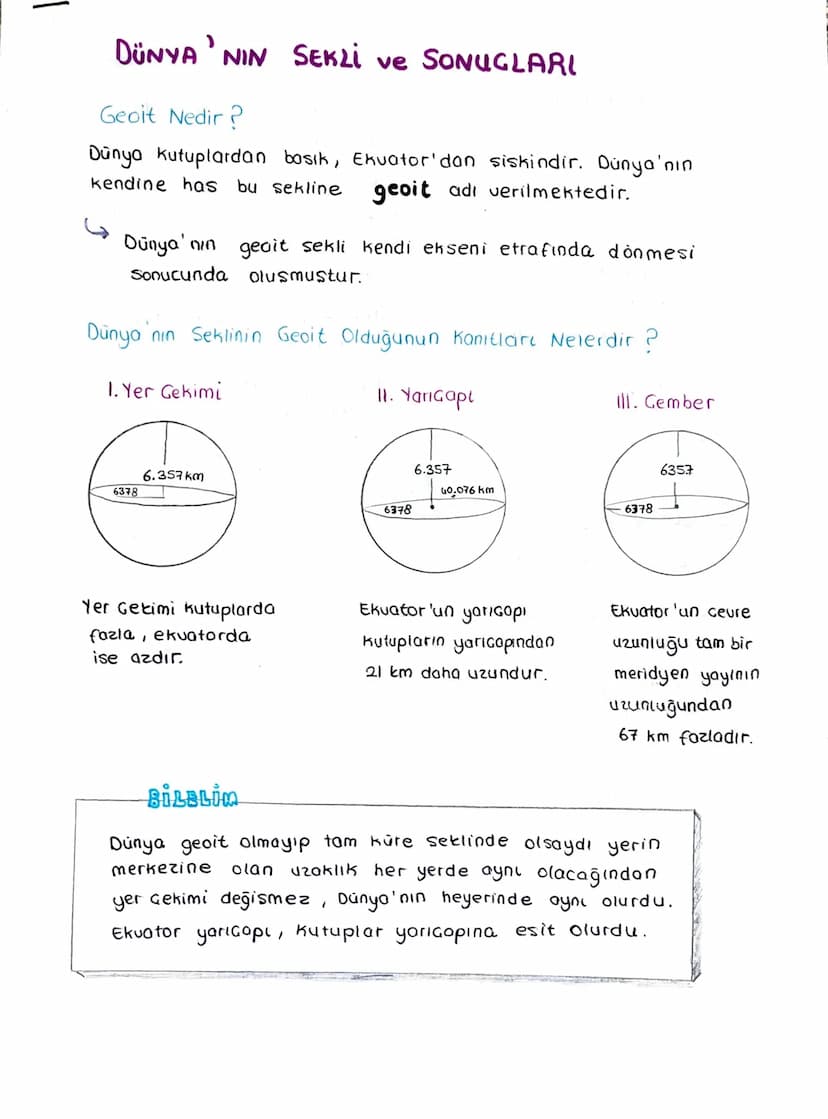 DÜNYA'NIN SEKLİ ve SONUCLARI
Geoit Nedir?
Dünya Kutuplardan basık, Ekvator'dan siskindir. Dünya'nın
kendine has bu sekline geoit adı verilmektedir.
Dünya'nın geoit sekli kendi ekseni etrafında dönmesi
sonucunda olusmustur.
Dünya'nın Seklinin Geoit Olduğunun Kanıtları Nelerdir?
I. Yer Cekimi
6.357 km
6378
Yer Cekimi Kutuplarda
fazla, ekvatorda
ise azdır.
II. Yarıcapı
6.357
40.076 km
6378
Ekvator'un yarıcapı
kutupların yarıcapından
21 km daha uzundur.
III. Cember
6357
6378
Ekvator'un cevre
uzunluğu tam bir
meridyen yayının
uzunluğundan
67 km fazladır.
BİLELİM
Dünya geoit olmayıp tam küre seklinde olsaydı yerin
merkezine olan uzaklık her yerde aynı olacağından
yer cekimi değismez, Dünya'nın heyerinde aynı olurdu.
Ekvator yarıcapı, Kutuplar yarıcapına esit olurdu.